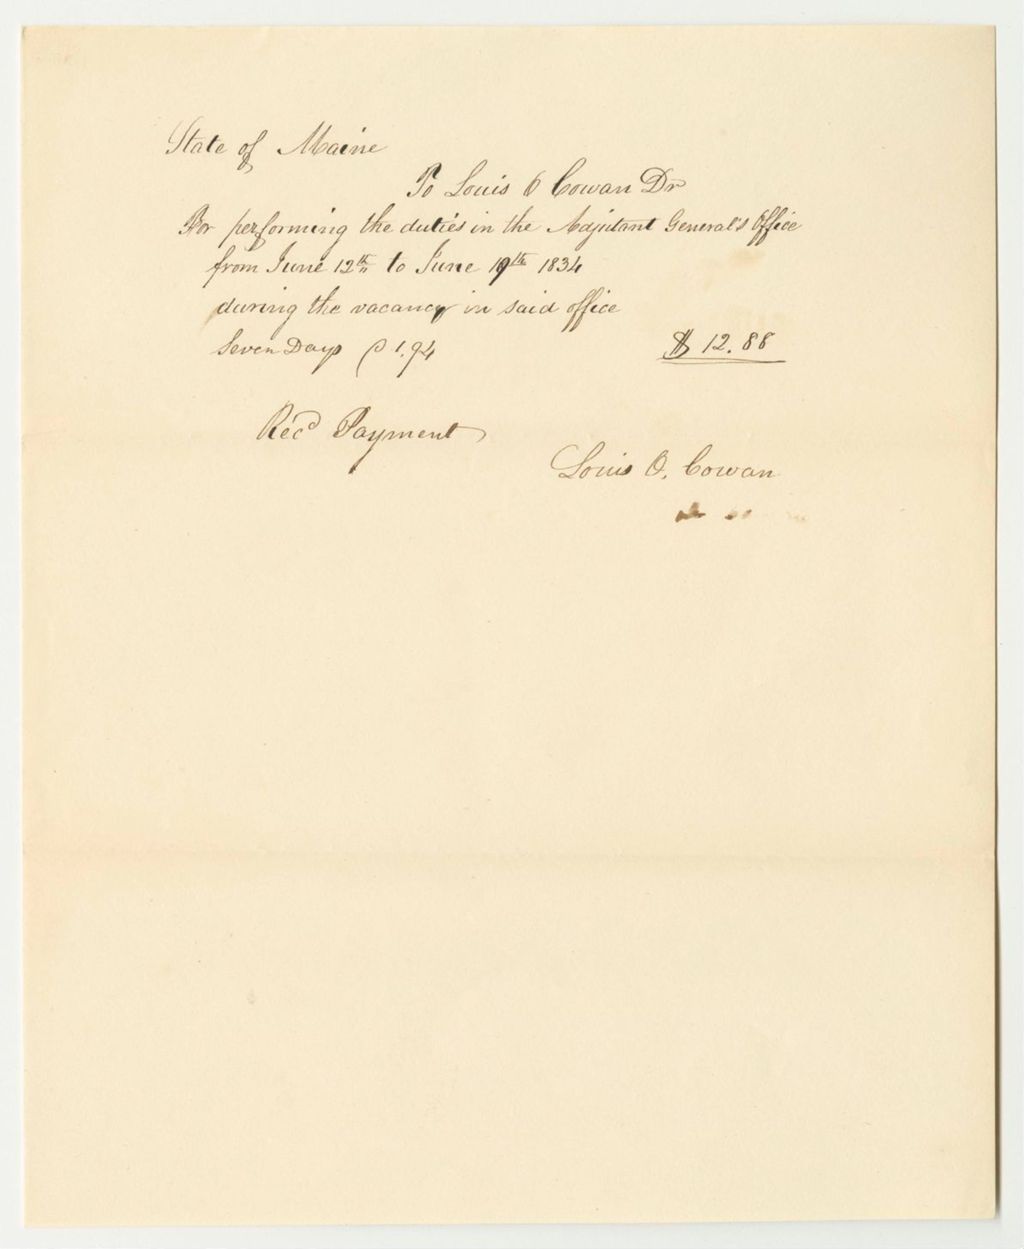 State of Maine
To Louis O Cowan Dr
For performing the duties in the Adjutant General's Office
from June 12th to June 19th 1834
during the vacancy in said office
Seven Days @ 1.94 $12.88
Rec'd Payment
Louis O. Cowan